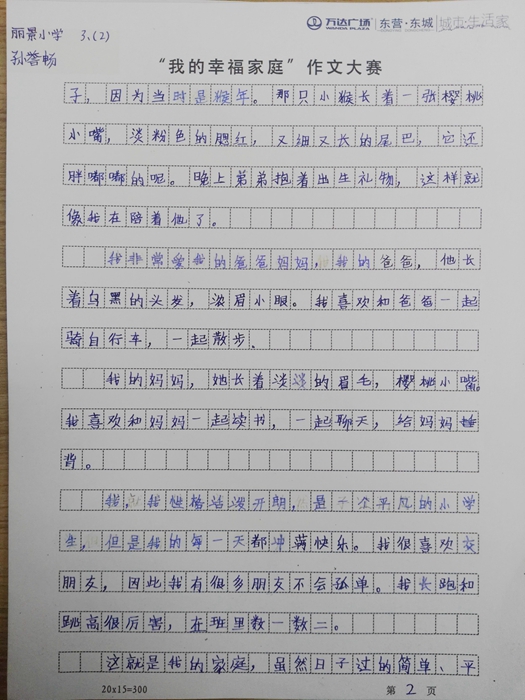 丽景小学 3、(2)
孙誉畅
万达广场 WANDA PLAZA 东营·东城 城市·生活家
“我的幸福家庭”作文大赛
子，因为当时是猴年。那只小猴长着一张樱桃
小嘴，淡粉色的腮红，又细又长的尾巴，它还
胖嘟嘟的呢。晚上弟弟抱着出生礼物，这样就
像我在陪着他了。
我非常爱我的爸爸妈妈，我的爸爸，他长
着乌黑的头发，浓眉小眼。我喜欢和爸爸一起
骑自行车，一起散步.
我的妈妈，她长着淡淡的眉毛，樱桃小嘴。
我喜欢和妈妈一起读书，一起聊天，给妈妈捶
背。
我，我性格活泼开朗，是一个平凡的小学
生，但是我的每一天都冲满快乐。我很喜欢交
朋友，因此我有很多朋友不会孤单。我长跑和
跳高很厉害，在班里数一数二。
这就是我的家庭，虽然日子过的简单、平
20x15=300 第2页